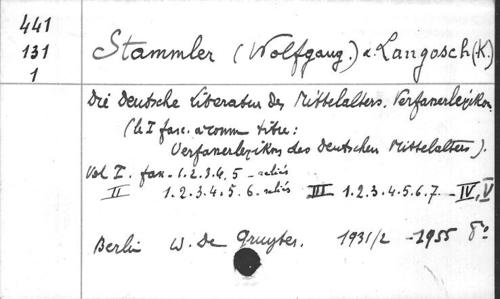 441
131
1
Stammler (Wolfgang.) & Langosch (K.)
Die Deutsche Literatur des Mittelalters. Verfasserlexikon
(le I fasc. a comm titre:
Verfasserlexikon des Deutschen Mittelalters).
Vol I. fasc. 1.2.3.4.5 - reliés
II 1.2.3.4.5.6 - reliés III 1.2.3.4.5.6.7 - IV, V
Berlin W. De Gruyter. 1931/2 - 1955 8°